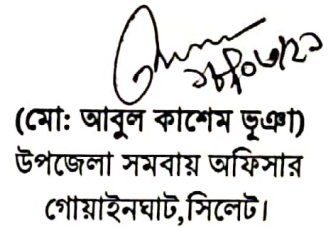 (মো: আবুল কাশেম ভূঞা)
উপজেলা সমবায় অফিসার
গোয়াইনঘাট,সিলেট।